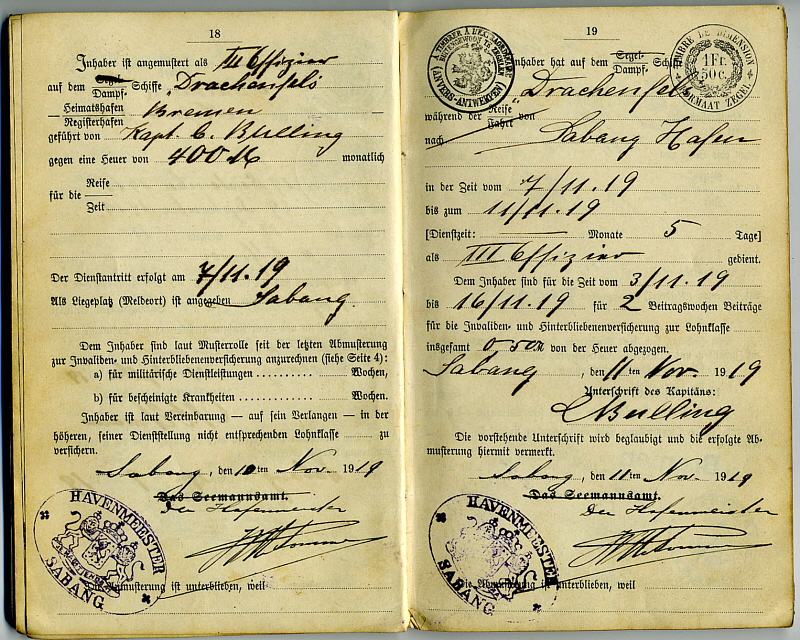 18
Inhaber ist angemustert als III Offizier
auf dem Segel- Dampf- Schiffe „Drachenfels
Heimatshafen
Registerhafen Bremen
geführt von Kapt. C. Bulling
gegen eine Heuer von 400 M monatlich
Reise
für die
Zeit
Der Dienstantritt erfolgt am 7/11.19
Als Liegeplatz (Meldeort) ist angegeben Sabang.
Dem Inhaber sind laut Musterrolle seit der letzten Abmusterung
zur Invaliden- und Hinterbliebenenversicherung anzurechnen (siehe Seite 4):
a) für militärische Dienstleistungen .......... Wochen,
b) für bescheinigte Krankheiten .......... Wochen.
Inhaber ist laut Vereinbarung — auf sein Verlangen — in der
höheren, seiner Dienststellung nicht entsprechenden Lohnklasse ........ zu
versichern.
Sabang, den 10ten Nov. 1919
Das Seemannsamt.
Der Hafenmeister
HAVENMEESTER
SABANG
Die Anmusterung ist unterblieben, weil
19
À TIMBRER À L'EX
BUITENGEWOON TE ZEGELEN
(ANVERS-ANTWERPEN)
TIMBRE DE DIMENSION
1Fr.
50c.
FORMAAT ZEGEL
Inhaber hat auf dem Segel- Dampf- Schiffe
„Drachenfels
während der Reise Fahrt von
nach Sabang Hafen
in der Zeit vom 7/11.19
bis zum 11/11.19
[Dienstzeit: — Monate 5 Tage]
als III Offizier gedient.
Dem Inhaber sind für die Zeit vom 3/11.19
bis 16/11.19 für 2 Beitragswochen Beiträge
für die Invaliden- und Hinterbliebenenversicherung zur Lohnklasse
insgesamt 0,50 M von der Heuer abgezogen.
Sabang, den 11ten Nov. 1919
Unterschrift des Kapitäns:
C Bulling
Die vorstehende Unterschrift wird beglaubigt und die erfolgte Ab-
musterung hiermit vermerkt.
Sabang, den 11ten Nov 1919
Das Seemannsamt.
Der Hafenmeister
HAVENMEESTER
SABANG
Die Abmusterung ist unterblieben, weil